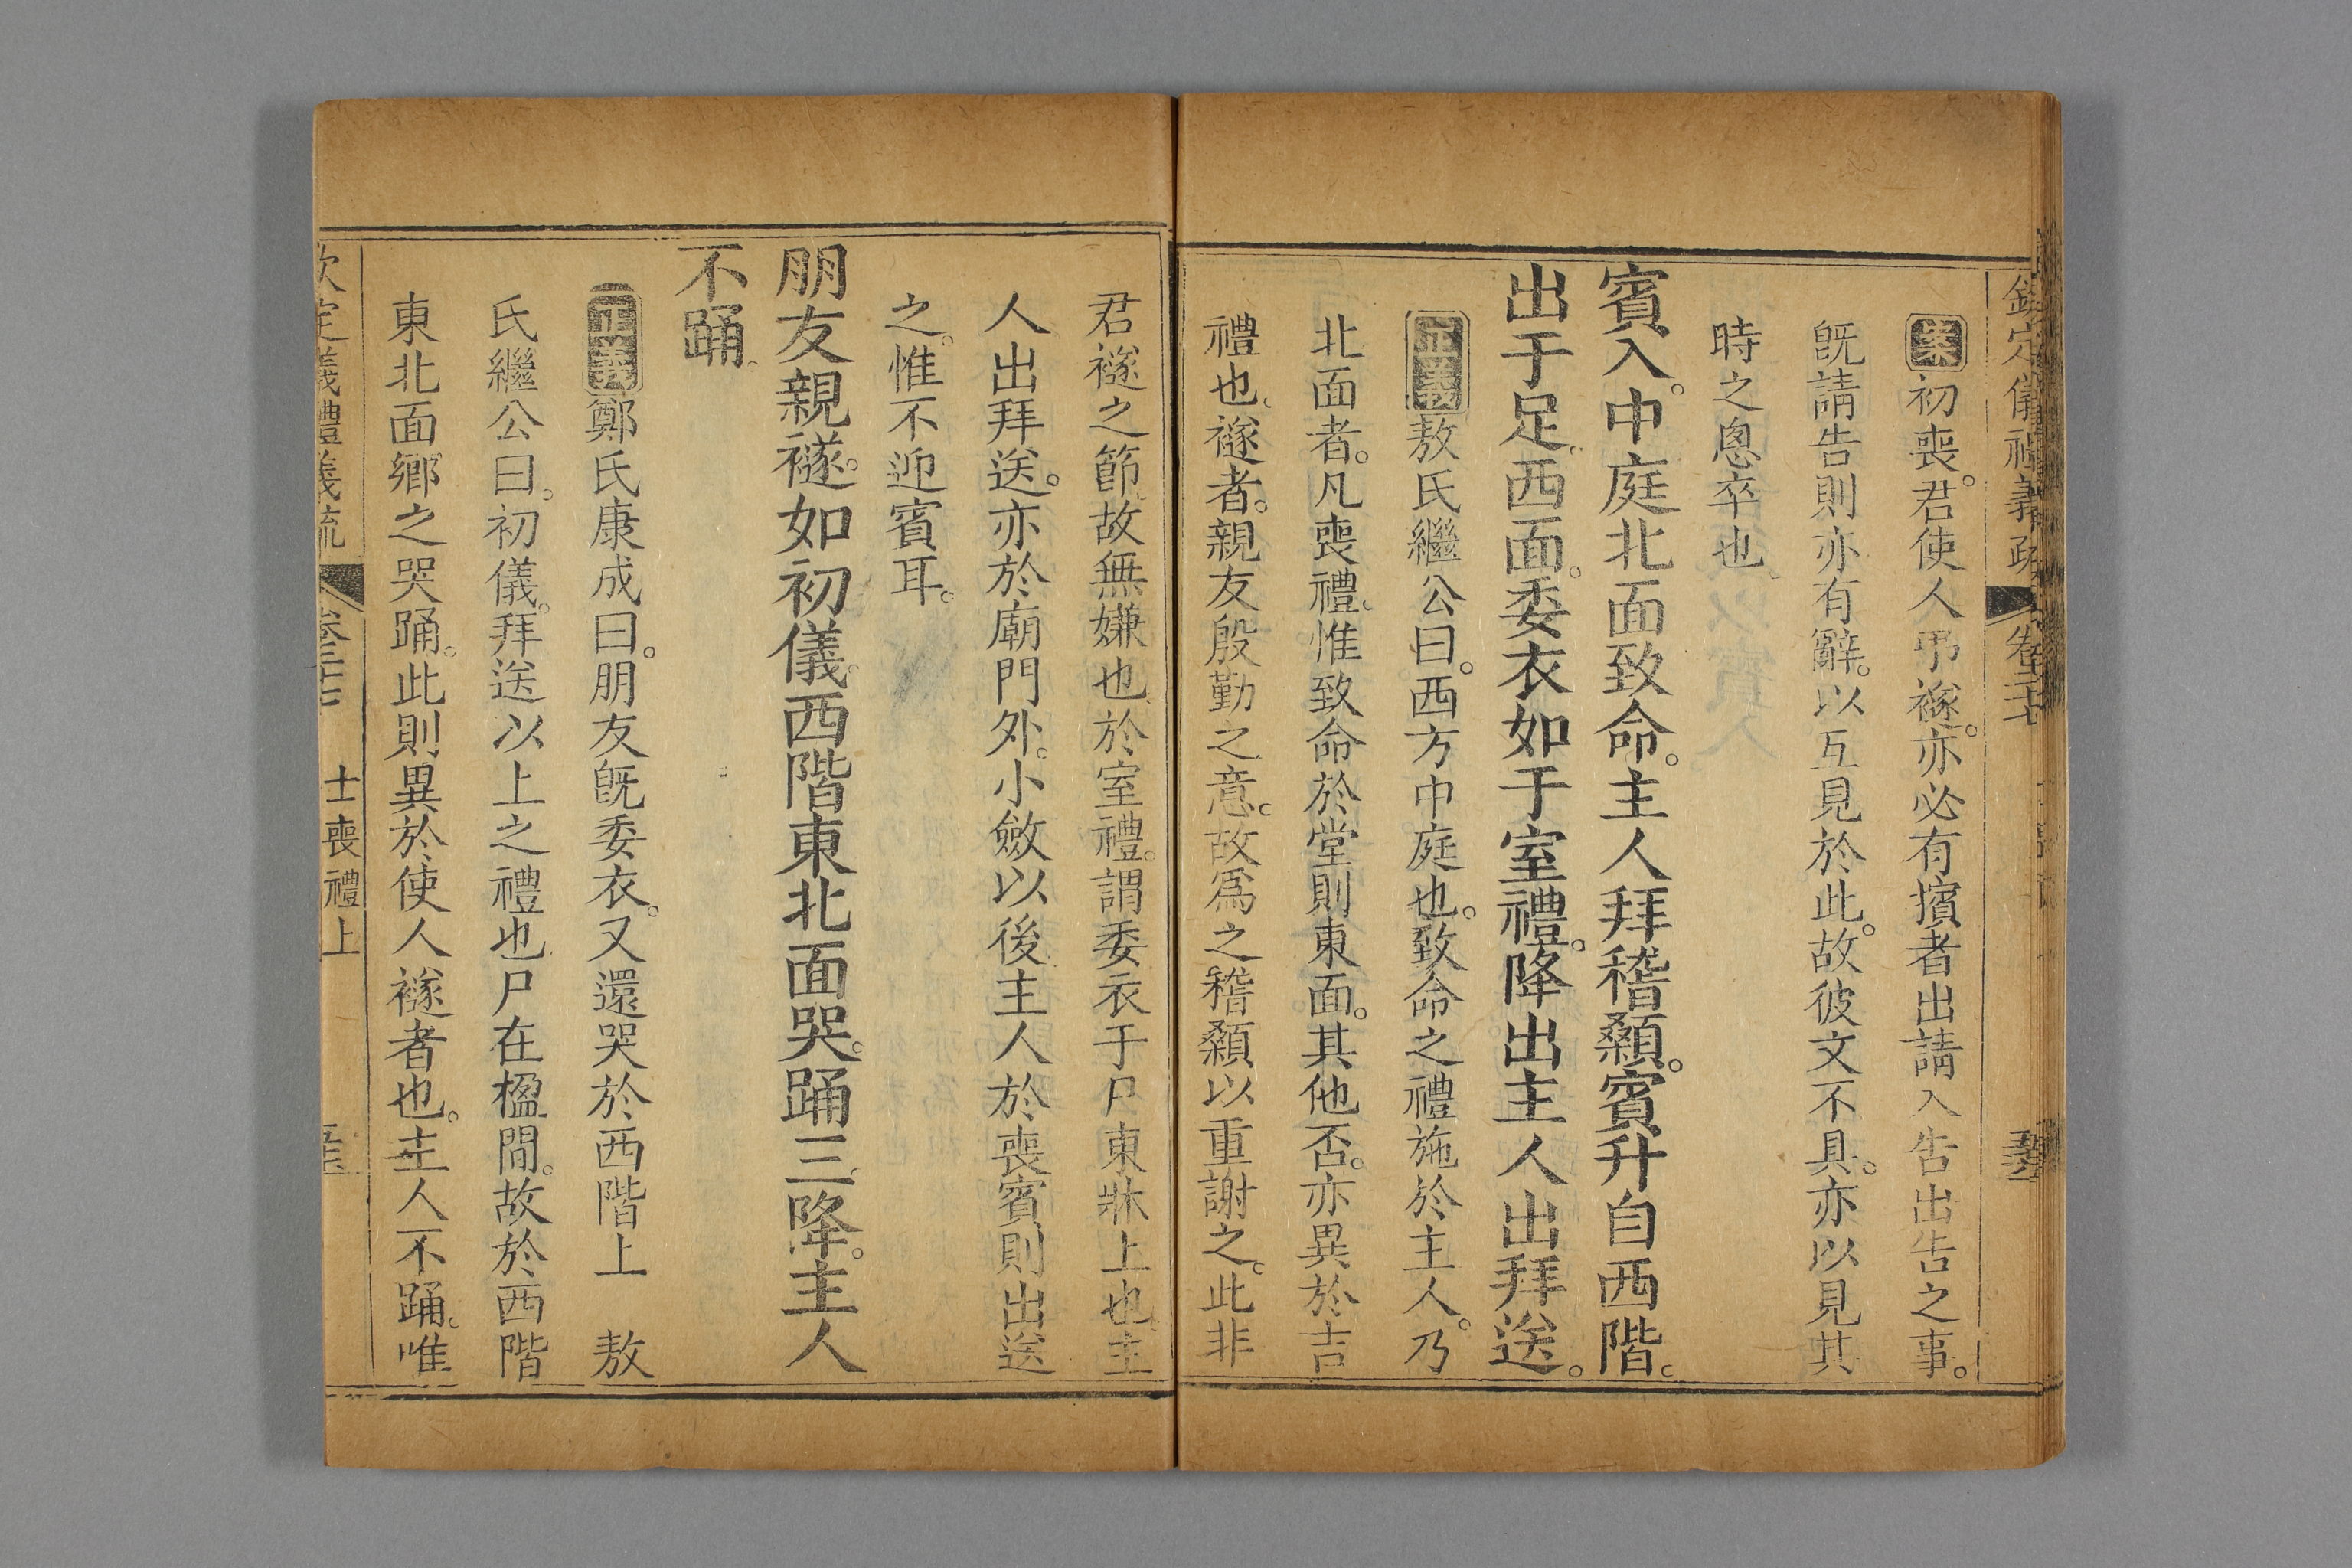 欽定儀禮義疏 卷二十七
案初喪。君使人弔襚。亦必有擯者出請入告出告之事。
旣請告則亦有辭。以互見於此。故彼文不具。亦以見其
時之悤卒也。
賓入。中庭北面致命。主人拜稽顙。賓升自西階。
出于足。西面。委衣如于室禮。降出主人出拜送。
正義敖氏繼公曰。西方中庭也。致命之禮施於主人。乃
北面者。凡喪禮。惟致命於堂則東面。其他否。亦異於吉
禮也。襚者。親友殷勤之意。故爲之稽顙以重謝之。此非
君襚之節。故無嫌也。於室禮。謂委衣于尸東牀上也。主
人出拜送。亦於廟門外。小斂以後主人於喪賓則出送
之。惟不迎賓耳。
朋友親襚。如初儀。西階東北面哭。踊三。降。主人
不踊。
正義鄭氏康成曰。朋友旣委衣。又還哭於西階上 敖
氏繼公曰。初儀。拜送以上之禮也。尸在楹閒。故於西階
東北面鄉之哭踊。此則異於使人襚者也。主人不踊。唯
欽定儀禮義疏 卷二十七 士喪禮上